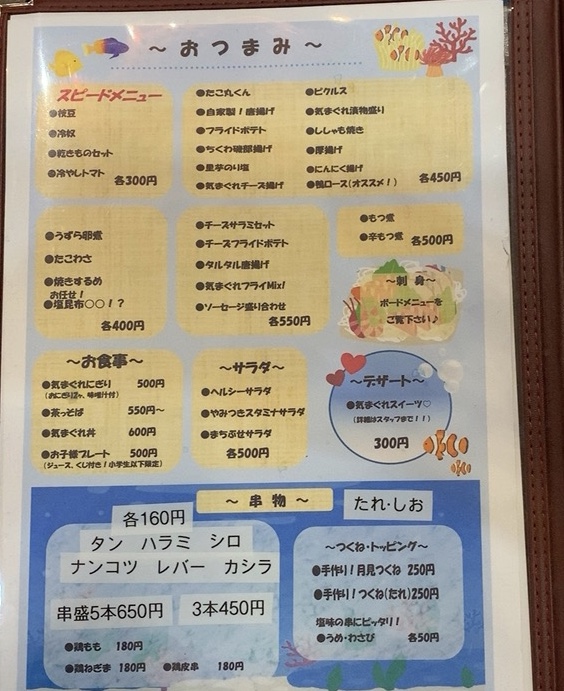 ～おつまみ～
スピードメニュー
●枝豆
●冷奴
●乾きものセット
●冷やしトマト
各300円
●たこ丸くん
●自家製！唐揚げ
●フライドポテト
●ちくわ磯部揚げ
●里芋のり塩
●気まぐれチーズ揚げ
●ピクルス
●気まぐれ漬物盛り
●ししゃも焼き
●厚揚げ
●にんにく揚げ
●鴨ロース(オススメ！)
各450円
●うずら卵煮
●たこわさ
●焼きするめ
お任せ！
●塩昆布○○！？
各400円
●チーズサラミセット
●チーズフライドポテト
●タルタル唐揚げ
●気まぐれフライMix!
●ソーセージ盛り合わせ
各550円
●もつ煮
●辛もつ煮 各500円
～刺 身～
ボードメニューを
ご覧下さい♪
～お食事～
●気まぐれにぎり 500円
(おにぎり2ヶ、味噌汁付)
●茶っそば 550円～
●気まぐれ丼 600円
●お子様プレート 500円
(ジュース、くじ付き！小学生以下限定)
～サラダ～
●ヘルシーサラダ
●やみつきスタミナサラダ
●まちぶせサラダ
各500円
～デザート～
●気まぐれスイーツ♡
(詳細はスタッフまで！！)
300円
～ 串 物 ～
たれ・しお
各160円
タン ハラミ シロ
ナンコツ レバー カシラ
串盛5本650円 3本450円
●鶏もも 180円
●鶏ねぎま 180円 ●鶏皮串 180円
～つくね・トッピング～
●手作り！月見つくね 250円
●手作り！つくね(たれ)250円
塩味の串にピッタリ！
●うめ・わさび 各50円